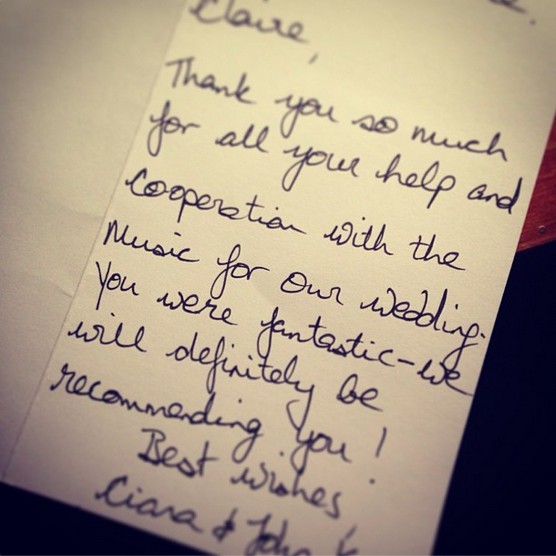 Claire,
Thank you so much
for all your help and
cooperation with the
Music for our wedding.
You were fantastic - we
will definitely be
recommending you!
Best wishes
Ciara & John